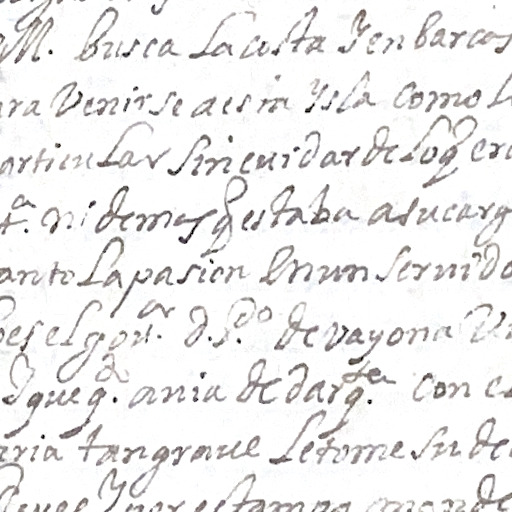 M. busca La costa Y en barcos
ara Venirse a esta Ysla como L
articular sin cuidar de loq̃ era
ta. ni demas q̃ estaba a su carg
anto La pasion En un servido
es el gov.or d. P.do de vayona V
Y que q.do avia de dar q.ta con e
ria tan grave Le tome su de